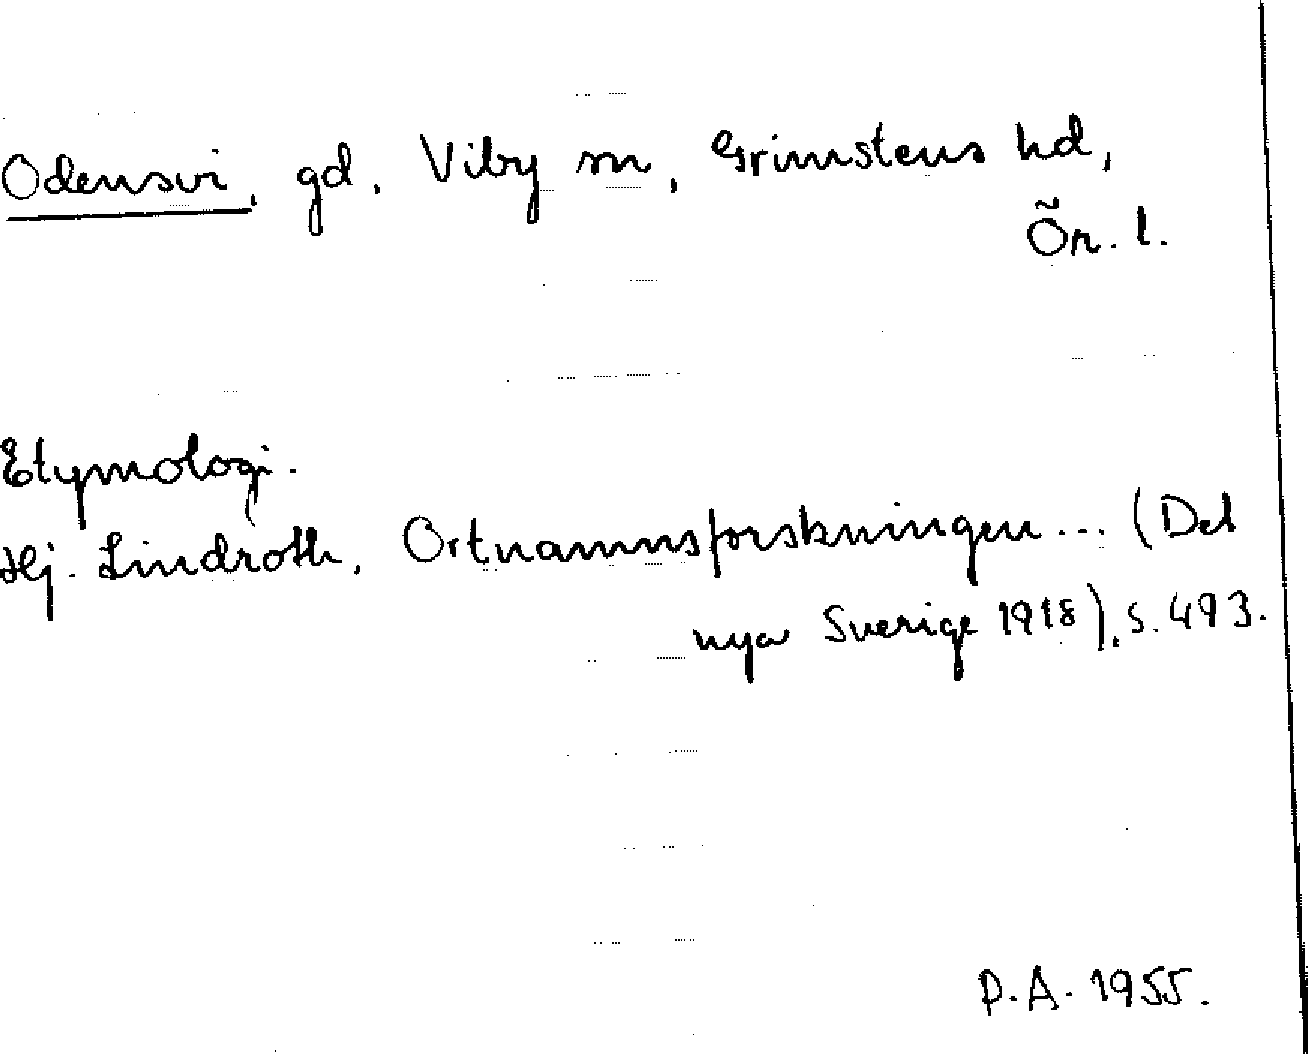 Odensvi, gd, Viby sn, Grimstens hd,
Ör. l.
Etymologi.
Hj. Lindroth, Ortnamnsforskningen ... (Det
nya Sverige 1918), s. 493.
P.A. 1955.